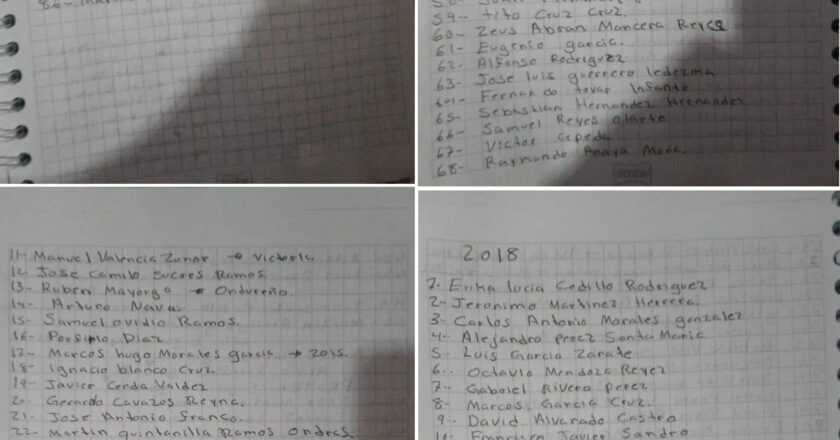 80-
59- Tito Cruz Cruz.
60- Zeus Abran Mancera Reyes
61- Eugenio garcia.
62- Alfonso Rodriguez
63- Jose luis guerrero ledezma
64- Fernando tovar Infante
65- Sebastian Hernandez Hernandez
66- Samuel Reyes olarte
67- Victor Cepeda
68- Raymundo Anaya
11- Manuel Valencia → Victoria
12- Jose Camilo Ramos
13- Ruben Mayorga → Ondureño
14- Arturo Nava.
15- Samuel ovidio Ramos.
16- Porfirio Diaz
17- Marcos hugo Morales garcia → 2015.
18- Ignacio blanco Cruz.
19- Javier Cerda Valdez
20- Gerardo Cavazos Reyna.
21- Jose Antonio franco.
22- Martin quintanilla Ramos
2018
1- Erika lucia Cedillo Rodriguez
2- Jeronimo Martinez Herrera.
3- Carlos Antonio Morales gonzalez
4- Alejandro perez Santa Maria
5- Luis Garcia Zarate
6- Octavio Mendoza Reyez
7- Gabriel Rivera perez
8- Marcos Garcia Cruz.
9- David Alvarado Castro
10- Francisco Javier Sandro